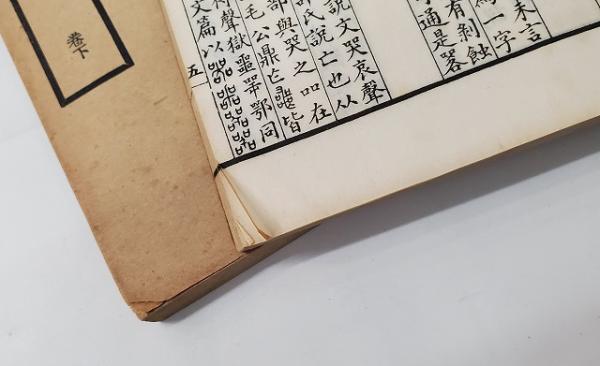 未言
一字
有剝蝕
通是
說文哭哀聲
氏說亡也从
部與哭之品在
毛公鼎亡皆
聲獄噩咢鄂同
文篇以
五
卷下